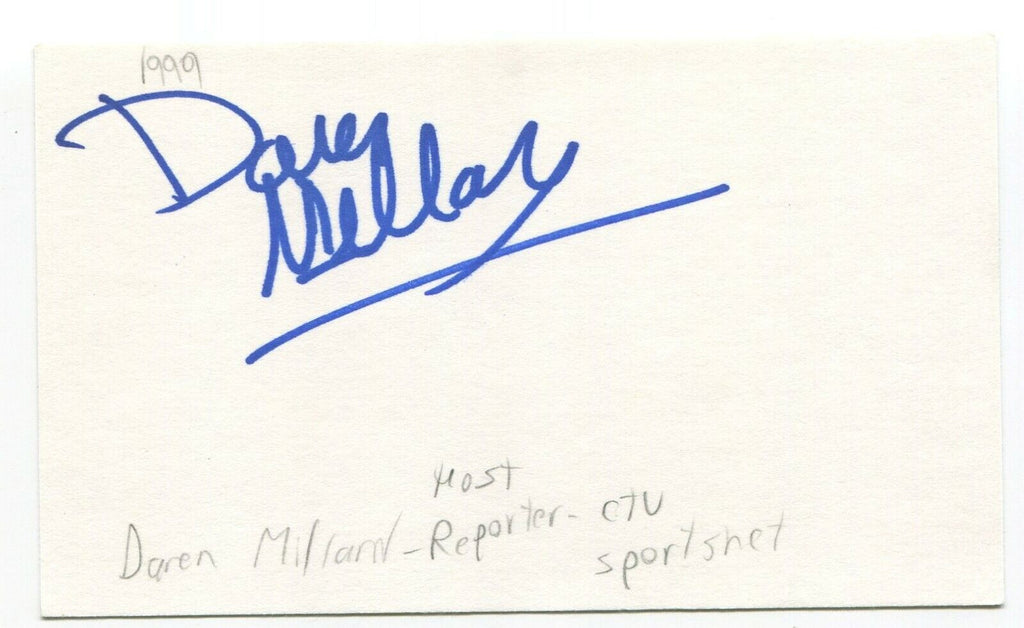 1999
Daren
Millar
Host
Daren Millard - Reporter - CTV
sportsnet